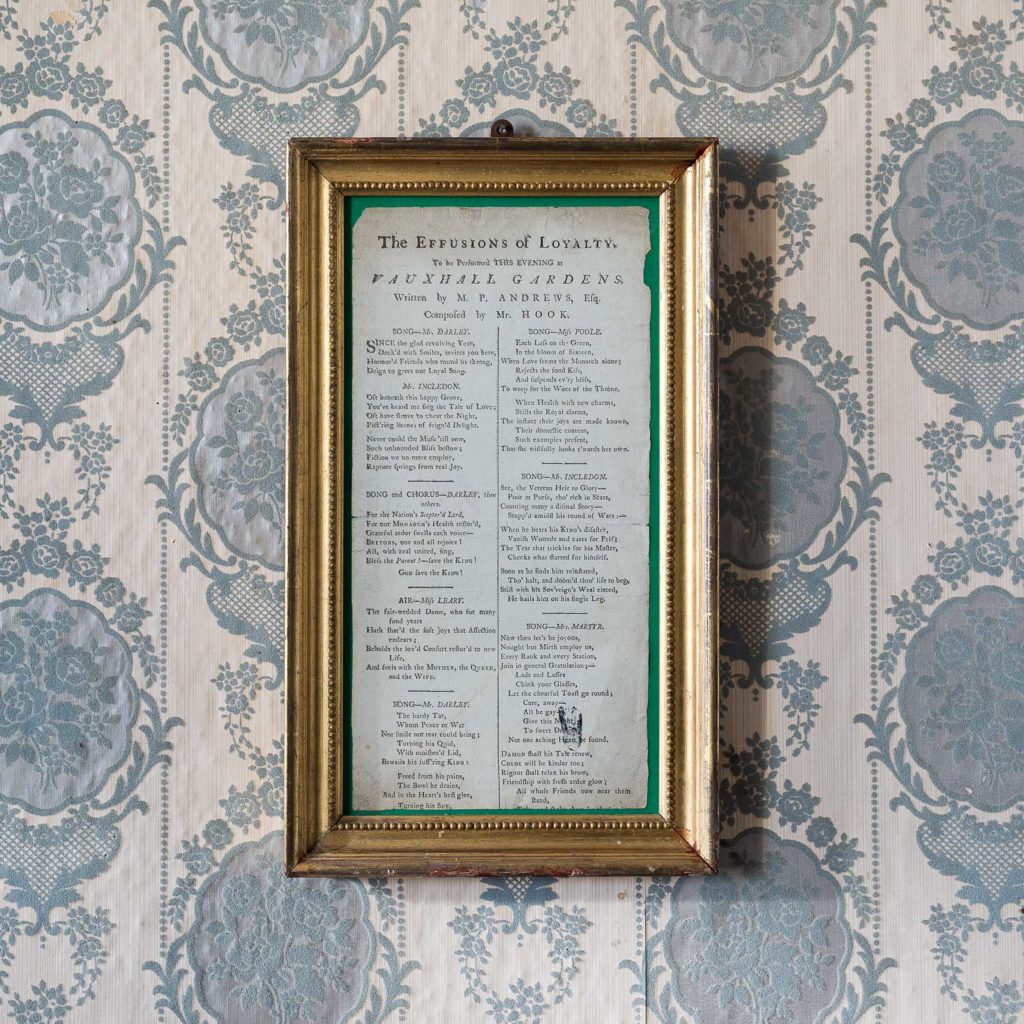 The EFFUSIONS of LOYALTY.
To be Performed THIS EVENING at
VAUXHALL GARDENS.
Written by M. P. ANDREWS, Esq.
Composed by Mr. HOOK.
SONG—Mr. DARLEY.
SINCE the glad revolving Year,
Deck'd with Smiles, invites you here,
Honour'd Friends who round us throng,
Deign to greet our Loyal Song.
Mr. INCLEDON.
Oft beneath this happy Grove,
You've heard me ſing the Tale of Love;
Oft have ſtrove to chear the Night,
Pict'ring Scenes of feign'd Delight.
Never could the Muſe 'till now,
Such unbounded Bliſs beſtow;
Fiction we no more employ,
Rapture ſprings from real Joy.
SONG and CHORUS—DARLEY, then
others.
For the Nation's Scepter'd Lord,
For our MONARCH's Health reſtor'd,
Grateful ardor ſwells each voice—
BRITONS, one and all rejoice!
All, with zeal united, ſing,
Bleſs the Parent!—ſave the KING!
GOD ſave the KING!
AIR—Miſs LEARY.
The fair-wedded Dame, who for many
fond years
Hath ſhar'd the ſoft joys that Affection
endears;
Beholds the lov'd Conſort reſtor'd to new
Life,
And feels with the MOTHER, the QUEEN,
and the WIFE.
SONG—Mr. DARLEY.
The hardy Tar,
Whom Peace or War
Nor ſmile nor tear could bring;
Turning his Quid,
With moiſten'd Lid,
Bewails his ſuff'ring KING:
Freed from his pains,
The Bowl he drains,
And in the Heart's beſt glee,
Turning his
SONG—Miſs POOLE.
Each Laſs on the Green,
In the bloom of Sixteen,
When Love ſeems the Monarch alone;
Rejects the fond Kiſs,
And ſuſpends ev'ry bliſs,
To weep for the Woes of the Throne.
When Health with new charms,
Stills the Royal alarms,
The inſtant their joys are made known,
Their domeſtic content,
Such examples preſent,
That ſhe wiſhfully looks t'wards her own.
SONG—Mr. INCLEDON.
See, the Veteran Heir to Glory—
Poor in Purſe, tho' rich in Scars,
Counting many a diſmal Story—
Stopp'd amidſt his round of Wars:—
When he hears his KING's diſaſter,
Vaniſh Wounds and cares for Pelf;
The Tear that trickles for his Maſter,
Checks what ſtarted for himſelf.
Soon as he finds him reinſtated,
Tho' halt, and doom'd thro' life to beg,
Still with his Sov'reign's Weal elated,
He hails him on his ſingle Leg.
SONG—Mrs. MARTYR.
Now then let's be joyous,
Nought but Mirth employ us,
Every Rank and every Station,
Join in general Gratulation;—
Lads and Laſſes
Chink your Glaſſes,
Let the chearful Toaſt go round;
Care, away—
All be gay
Give this Night
To ſweet
Not one aching Heart be found.
DAMON ſhall his Tale renew,
CHLOE will be kinder too;
Rigour ſhall relax his brow,
Friendſhip with freſh ardor glow;
All whoſe Friends now near them
ſtand,